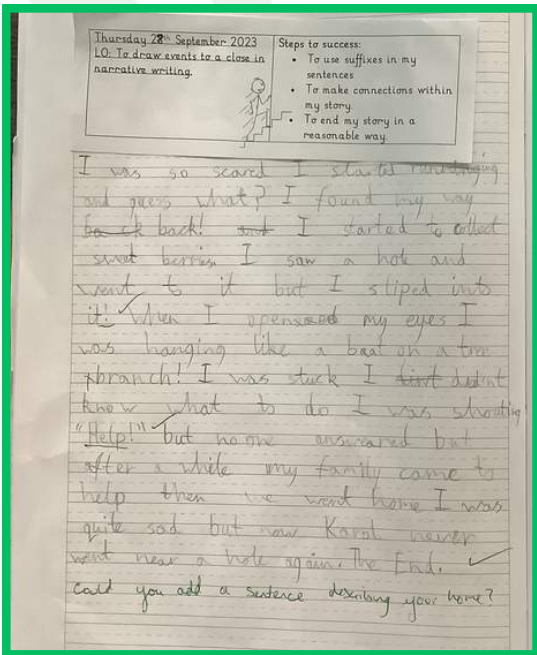 Thursday 28th September 2023
LO: To draw events to a close in
narrative writing.
Steps to success:
• To use suffixes in my
sentences
• To make connections within
my story.
• To end my story in a
reasonable way.
I was so scared I started
and guess what? I found my way
back! I started to collect
sweet berries. I saw a hole and
went to it but I sliped into
it! When I opened my eyes I
was hanging like a baat on a tree
branch! I was stuck I didn't
know what to do I was shouting
"Help!" but no one answeared but
after a while my family came to
help then we went home I was
quite sad but now Karol never
went near a hole again. The End.
could you add a sentence describing your home?